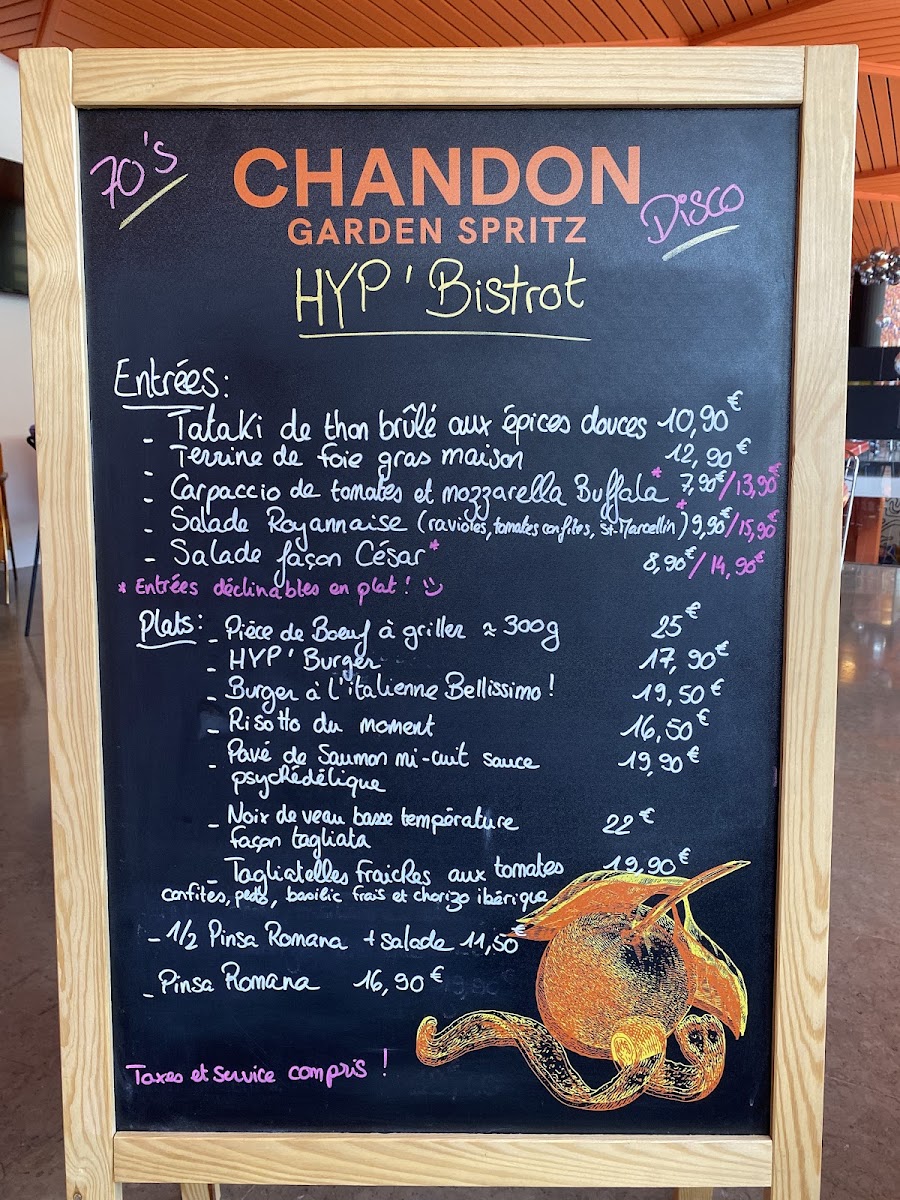 70's
CHANDON
GARDEN SPRITZ
Disco
HYP' Bistrot
Entrées:
- Tataki de thon brûlé aux épices douces 10,90€
- Terrine de foie gras maison 12,90€
- Carpaccio de tomates et mozzarella Buffala* 7,90€/13,90€
- Salade Royannaise (ravioles, tomates confites, St-Marcellin)* 9,90€/15,90€
- Salade façon César* 8,90€/14,90€
* Entrées déclinables en plat ! ☺
Plats: - Pièce de Boeuf à griller ≈ 300g 25€
- HYP' Burger 17,90€
- Burger à l'italienne Bellissimo ! 19,50€
- Risotto du moment 16,50€
- Pavé de Saumon mi-cuit sauce 19,90€
psychédélique
- Noix de veau basse température 22€
façon tagliata
- Tagliatelles fraiches aux tomates 19,90€
confites, pesto, basilic frais et chorizo ibérique
- 1/2 Pinsa Romana + salade 11,50€
- Pinsa Romana 16,90€
Taxes et service compris !